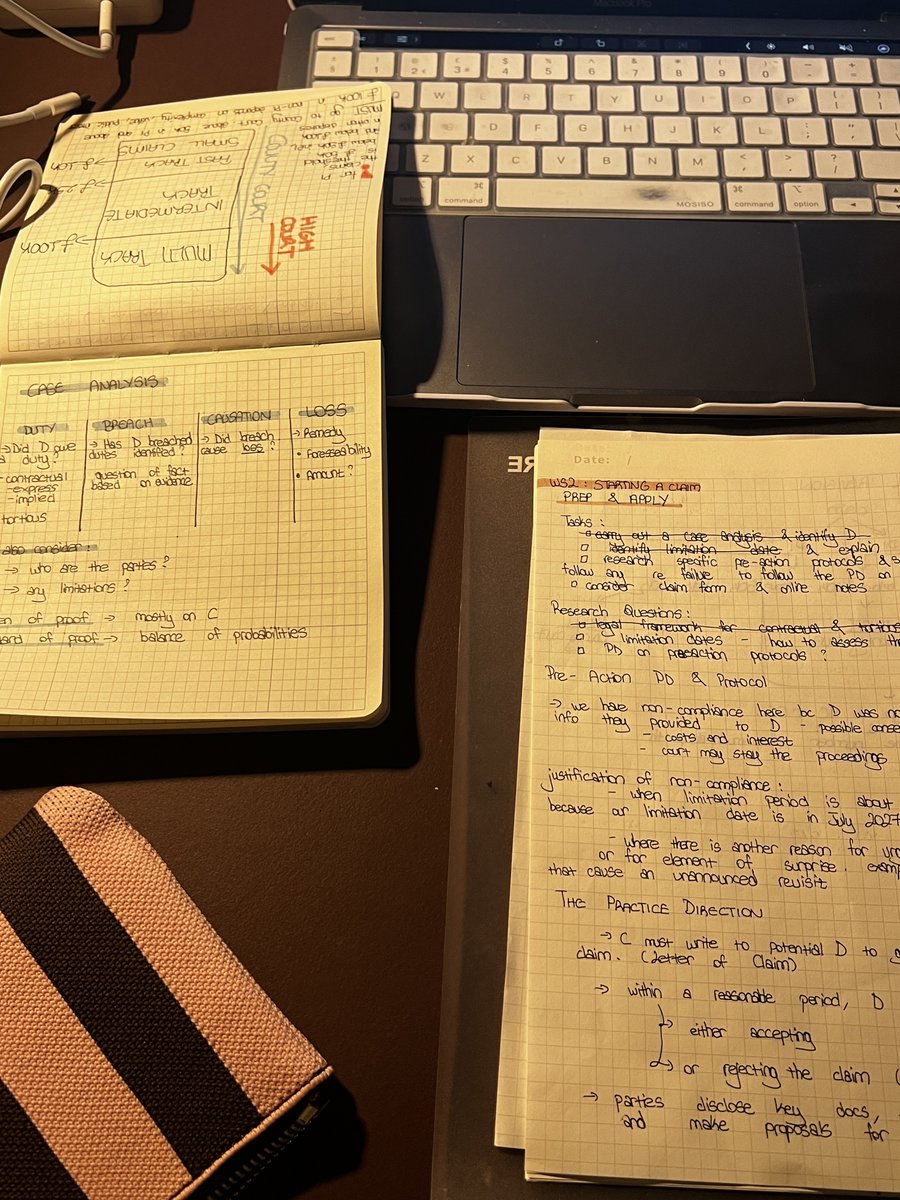 MacBook Pro
MOSISO
option
command
command
option
£100k in
MUST go to County Court. above 50k in PI and above
non-PI depends on complexity, value, public
for PI
claims
the threshold
is
SMALL CLAIMS
FAST TRACK
INTERMEDIATE
TRACK
MULTI TRACK
£10k
£100k
COUNTY COURT
HIGH
COURT
CASE ANALYSIS
DUTY
→ Did D owe
a duty?
- contractual
- express
- implied
tortious
BREACH
→ Has D breached
duties identified?
question of fact
based on evidence.
CAUSATION
→ Did breach
cause loss?
LOSS
→ Remedy
• Foreseeability
• Amount?
also consider:
→ who are the parties?
→ any limitations?
en of proof → mostly on C
ard of proof → balance of probabilities
Date: /
WS2: STARTING A CLAIM
PREP & APPLY
Tasks:
carry out a case analysis & identify D
identify limitation date & explain
research specific pre-action protocols & s
follow any re failure to follow the PD on
consider claim form & online notes
Research Questions:
legal framework for contractual & tortious
limitation dates - how to assess th
PD on preaction protocols?
Pre-Action PD & Protocol
→ we have non-compliance here bc D was no
info they provided to D - possible conse
- costs and interest
- court may stay the proceedings
justification of non-compliance:
- when limitation period is about
because our limitation date is in July 2027
- where there is another reason for ur
or for element of surprise. exam
that cause an unannounced revisit
THE PRACTICE DIRECTION
→ C must write to potential D to g
claim. (Letter of Claim)
→ within a reasonable period, D
→ either accepting
→ or rejecting the claim (
→ parties disclose key docs,
and make proposals for